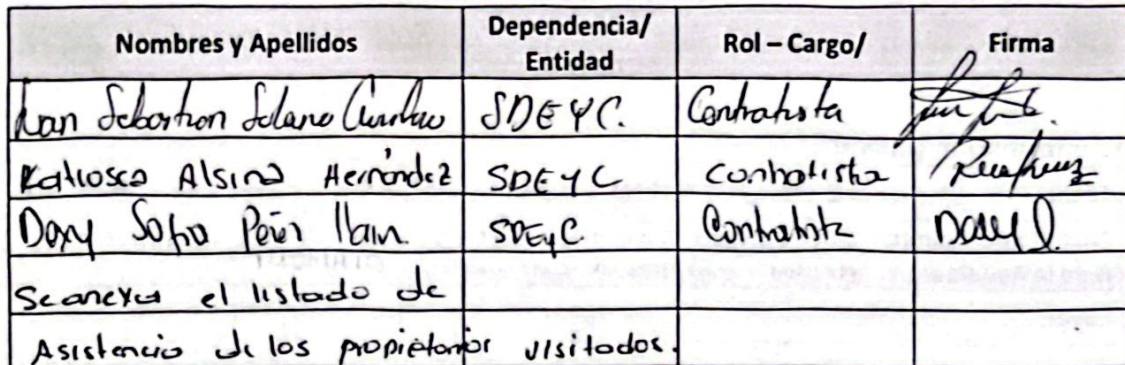 Nombres y Apellidos Dependencia/ Entidad Rol – Cargo/ Firma
Sebastian Solano SDEYC. Contratista
Katiosca Alsina Hernández SDEYC Contratista
Dary Sofia SDEyC Contratista
Se anexa el listado de
Asistencia de los propietarios visitados.